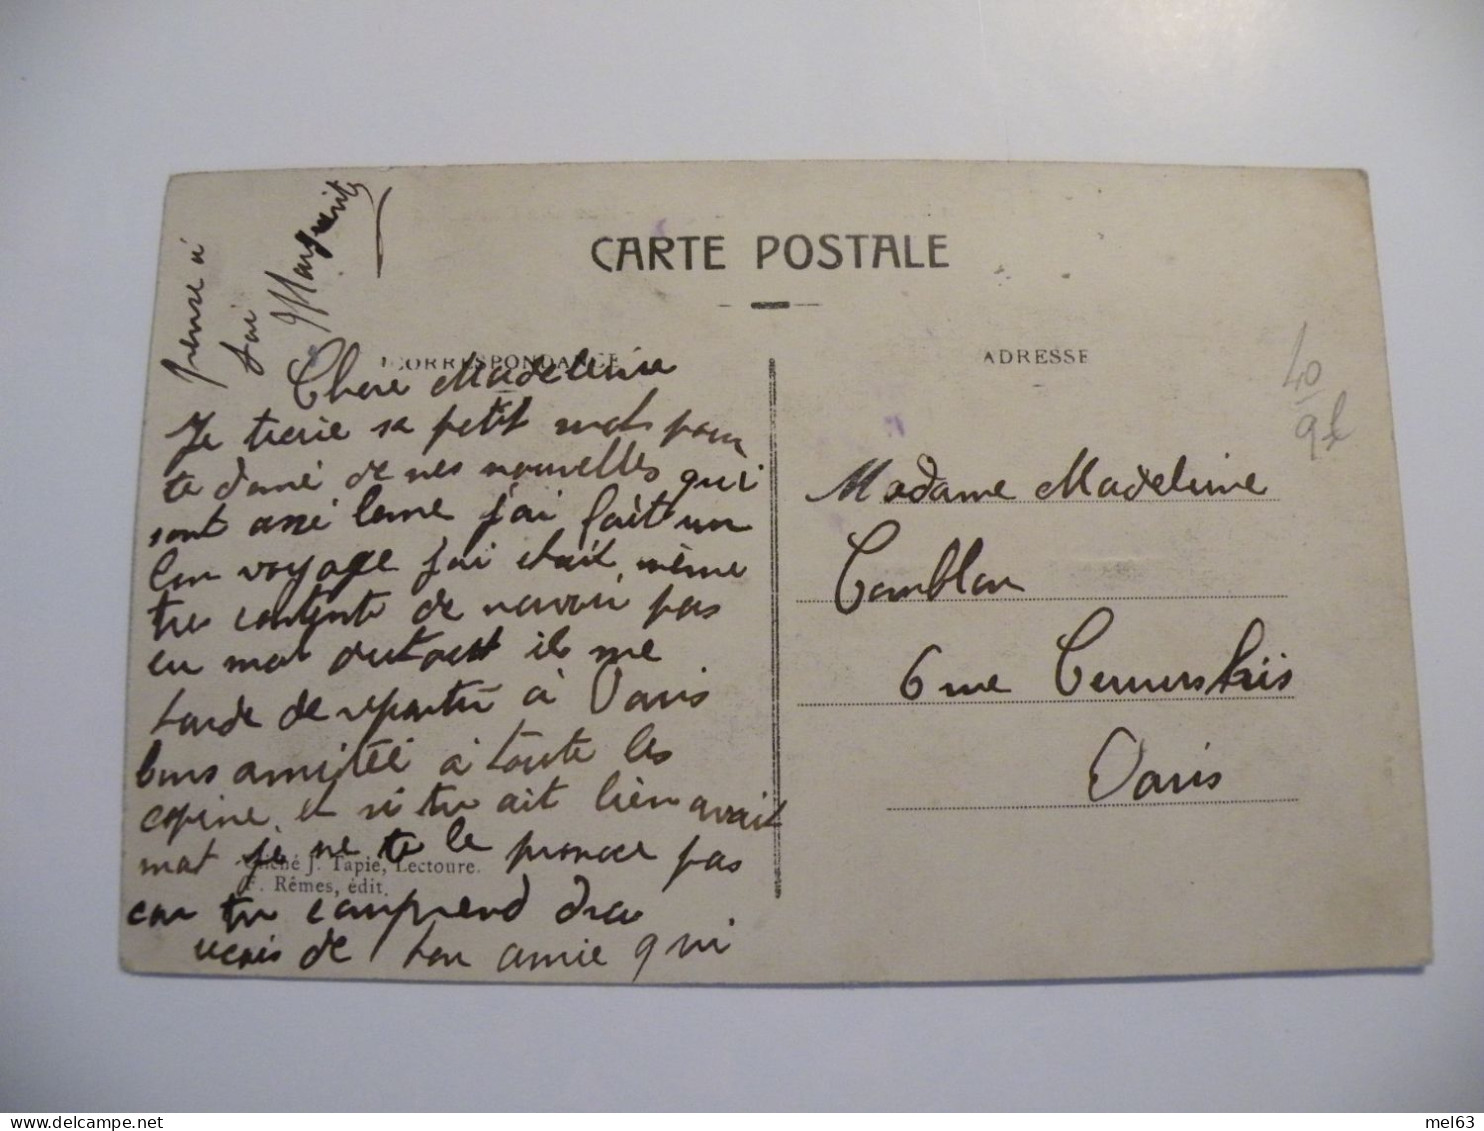 CARTE POSTALE
CORRESPONDANCE
ADRESSE
Chere Madeleine
Je trece se petit mot pour
te doné de mes nouvelles qui
sont assé bone j'ai fait un
bon voyage j'ai etait même
tres contente de navoir pas
eu mot il me
tarde de repartir à Paris
bons amitéé à toute les
copine et si tu ait bien avait
mot je ne te le pas
car tu comprend
de ton amie qui
pense à
toi Marguerite
Cliché J. Tapie, Lectoure.
F. Rêmes, édit.
Madame Madeleine
Camblon
6 rue
Paris
40
mel63